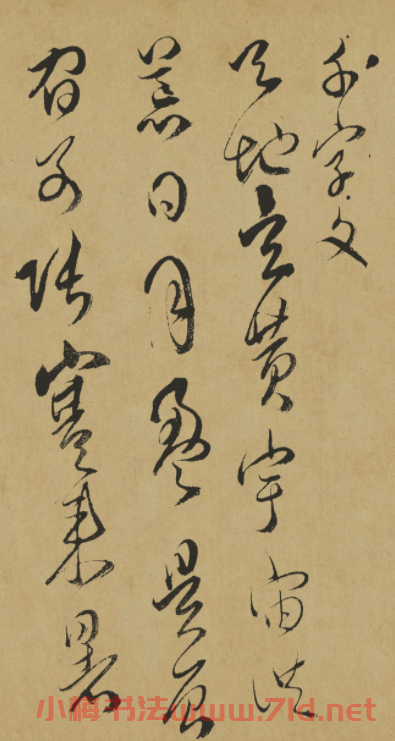 千字文
天地玄黄宇宙洪
荒日月盈昃辰
宿列張寒来暑
小梅书法www.7ld.net